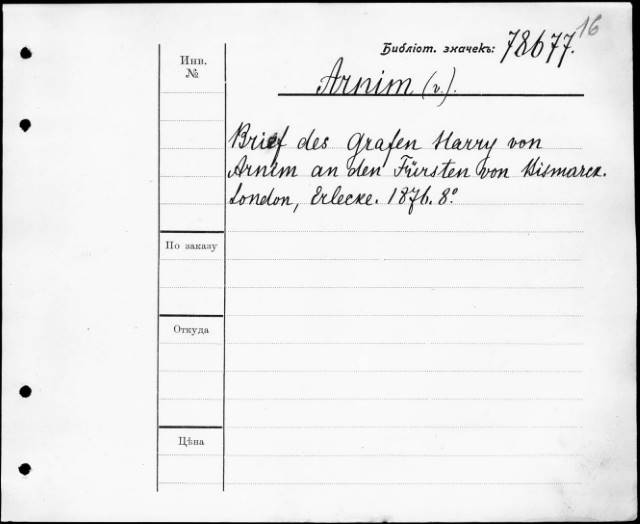 16
Библіот. значекъ: 78677.
Инв.
№
Arnim (v.).
Brief des Grafen Harry von
Arnim an den Fürsten von Bismarck.
London, Erlecke. 1876. 8º
По заказу
Откуда
Цѣна